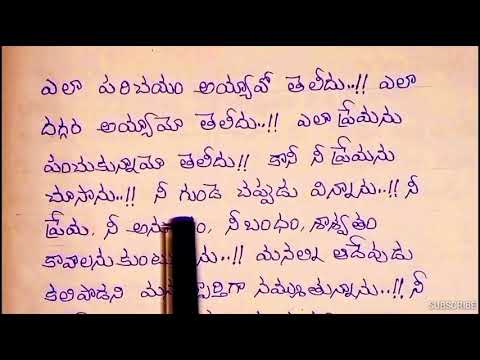 ఎలా పరిచయం అయ్యావో తెలీదు..!! ఎలా
దగ్గర అయ్యామో తెలీదు..!! ఎలా ప్రేమను
పంచుకున్నామో తెలీదు!! కానీ నీ ప్రేమను
చూసాను..!! నీ గుండె చప్పుడు విన్నాను..!! నీ
ప్రేమ, నీ నీబంధం, శాశ్వతం
..!! మనలిని ఆదేవుడు
కలిపాడని నమ్ముతున్నాను..!! నీ
SUBSCRIBE